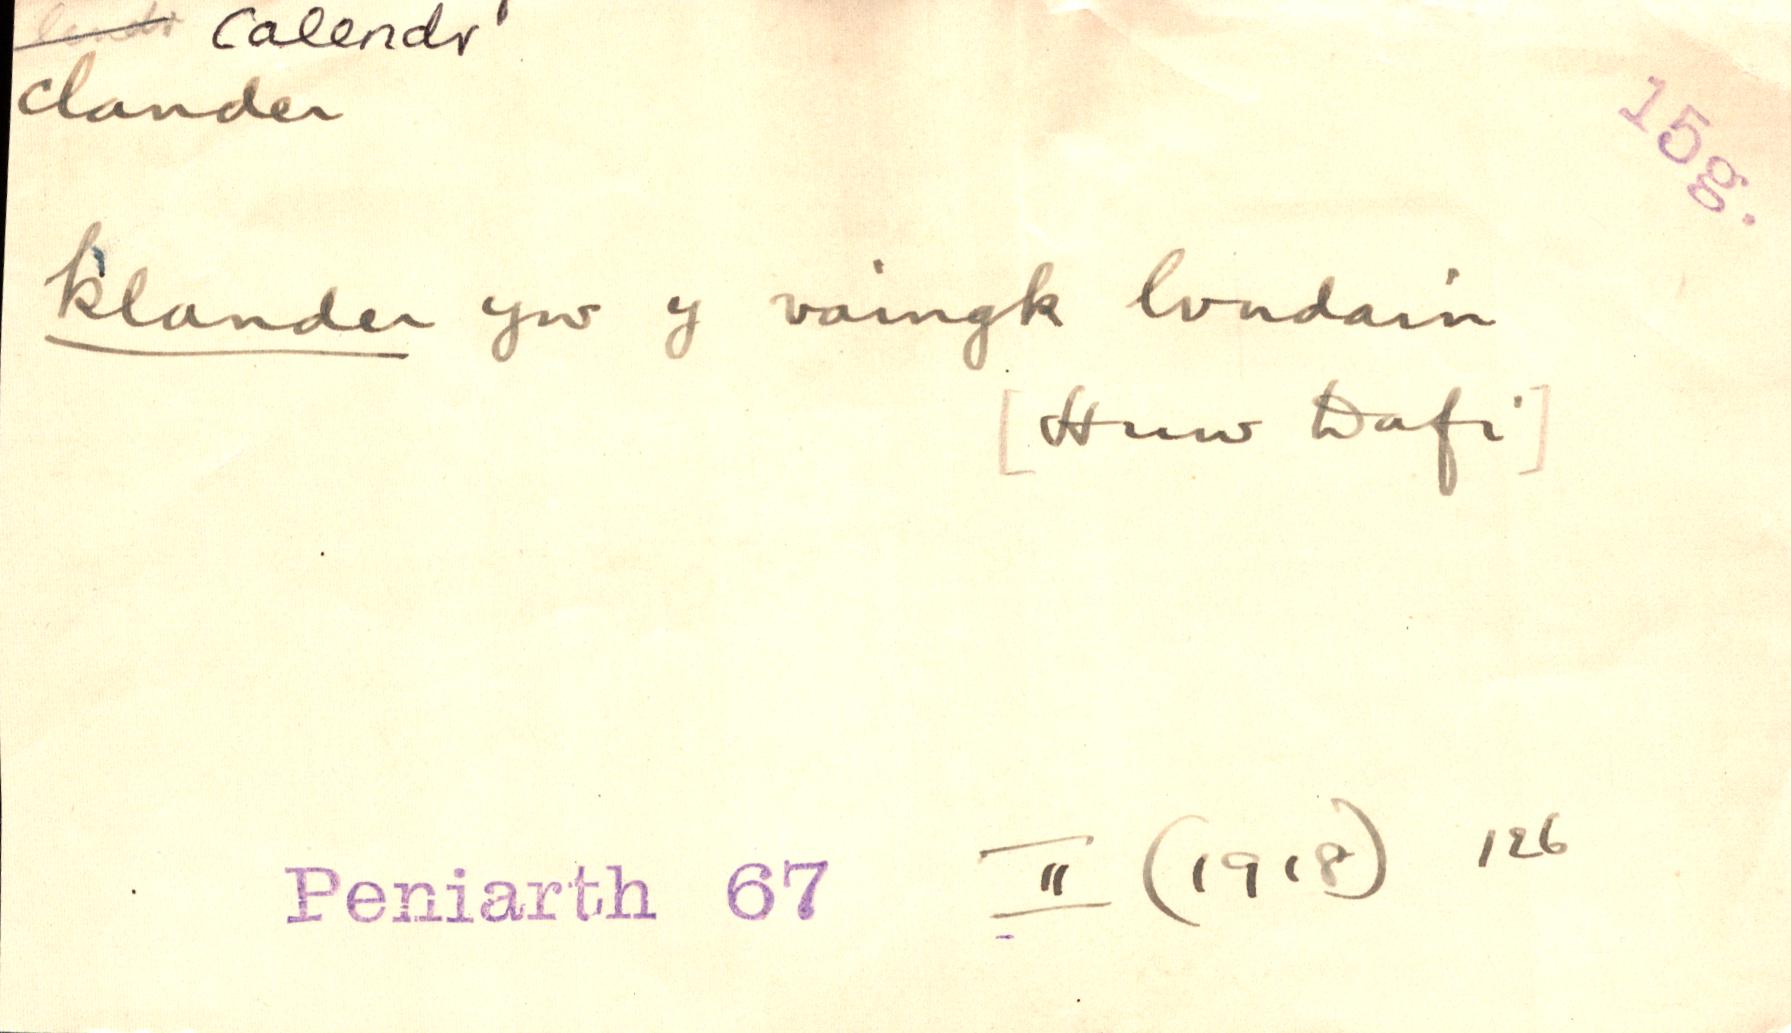 calendr
clander
15g.
klander yw y vaingk lvndain
[Huw Dafi]
Peniarth 67 II (1918) 126